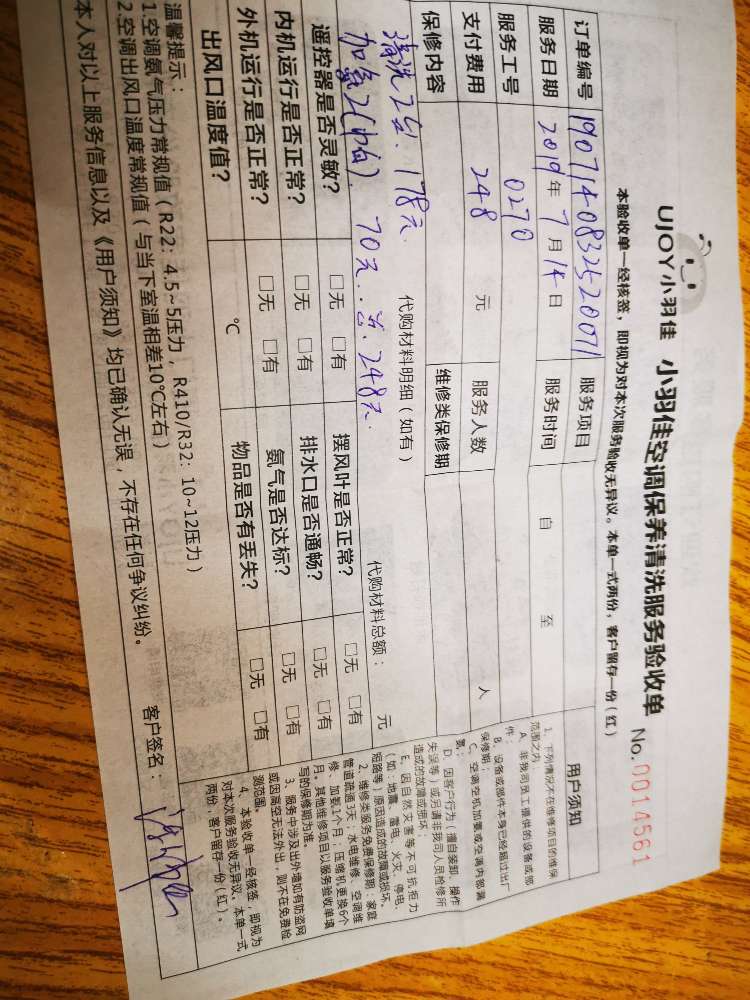 UJOY小羽佳 小羽佳空调保养清洗服务验收单
No.0014561
本验收单一经核签，即视为对本次服务验收无异议。本单一式两份，客户留存一份（红）
订单编号 1907140832520071 服务项目
服务日期 2019年7月14日 服务时间 自 至
服务工号 0270
支付费用 248 元 服务人数 人
保修内容 维修类保修期
清洗2台．178元 代购材料明细（如有） 代购材料总额： 元
70元．．共．248元．
遥控器是否灵敏？ □无 □有 摆风叶是否正常？ □无 □有
内机运行是否正常？ □无 □有 排水口是否通畅？ □无 □有
外机运行是否正常？ □无 □有 氨气是否达标？ □无 □有
出风口温度值？ ℃ 物品是否有丢失？ □无 □有
温馨提示：
1.空调氨气压力常规值（R22：4.5~5压力，R410/R32：10~12压力）
2.空调出风口温度常规值（与当下室温相差10℃左右）
本人对以上服务信息以及《用户须知》均已确认无误，不存在任何争议纠纷。
客户签名：
用户须知
1、下列情况不在维修项目的维保
范围之内
A、非我司员工提供的设备或部
件；
B、设备或部件本身已经超过出厂
保修期；
C、空调空机加氨或空调内部漏
氨；
D、因客户行为（擅自装卸、操作
失误等）或另请非我司人员检修所
造成的故障或损坏；
E、因自然灾害等不可抗拒力
（如：地震、雷电、火灾、停电、
短路等）原因造成的故障或损坏。
2、维修类服务免费保修期：家庭
管道疏通3天；水电维修、空调维
修、加氨1个月；压缩机更换6个
月。其他维修项目以服务验收单填
写的保修期为准。
3、服务中涉及出外墙如有防盗网
或因高空无法外出，则不在免费检
测范围。
4、本验收单一经核签，即视为
对本次服务验收无异议。本单一式
两份，客户留存一份（红）。